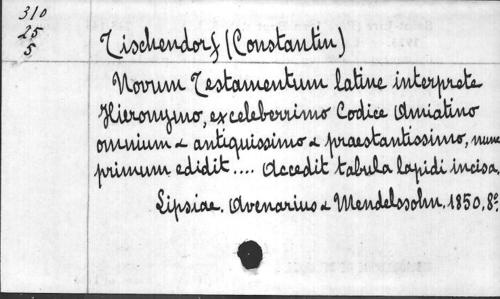 310
25
5
Tischendorf (Constantin)
Novum Testamentum latine interprete
Hieronymo, ex celeberrimo Codice Amiatino
omnium & antiquissimo & praestantissimo, nunc
primum edidit.... Accedit tabula lapidi incisa.
Lipsiae. Avenarius & Mendelssohn. 1850. 8º.